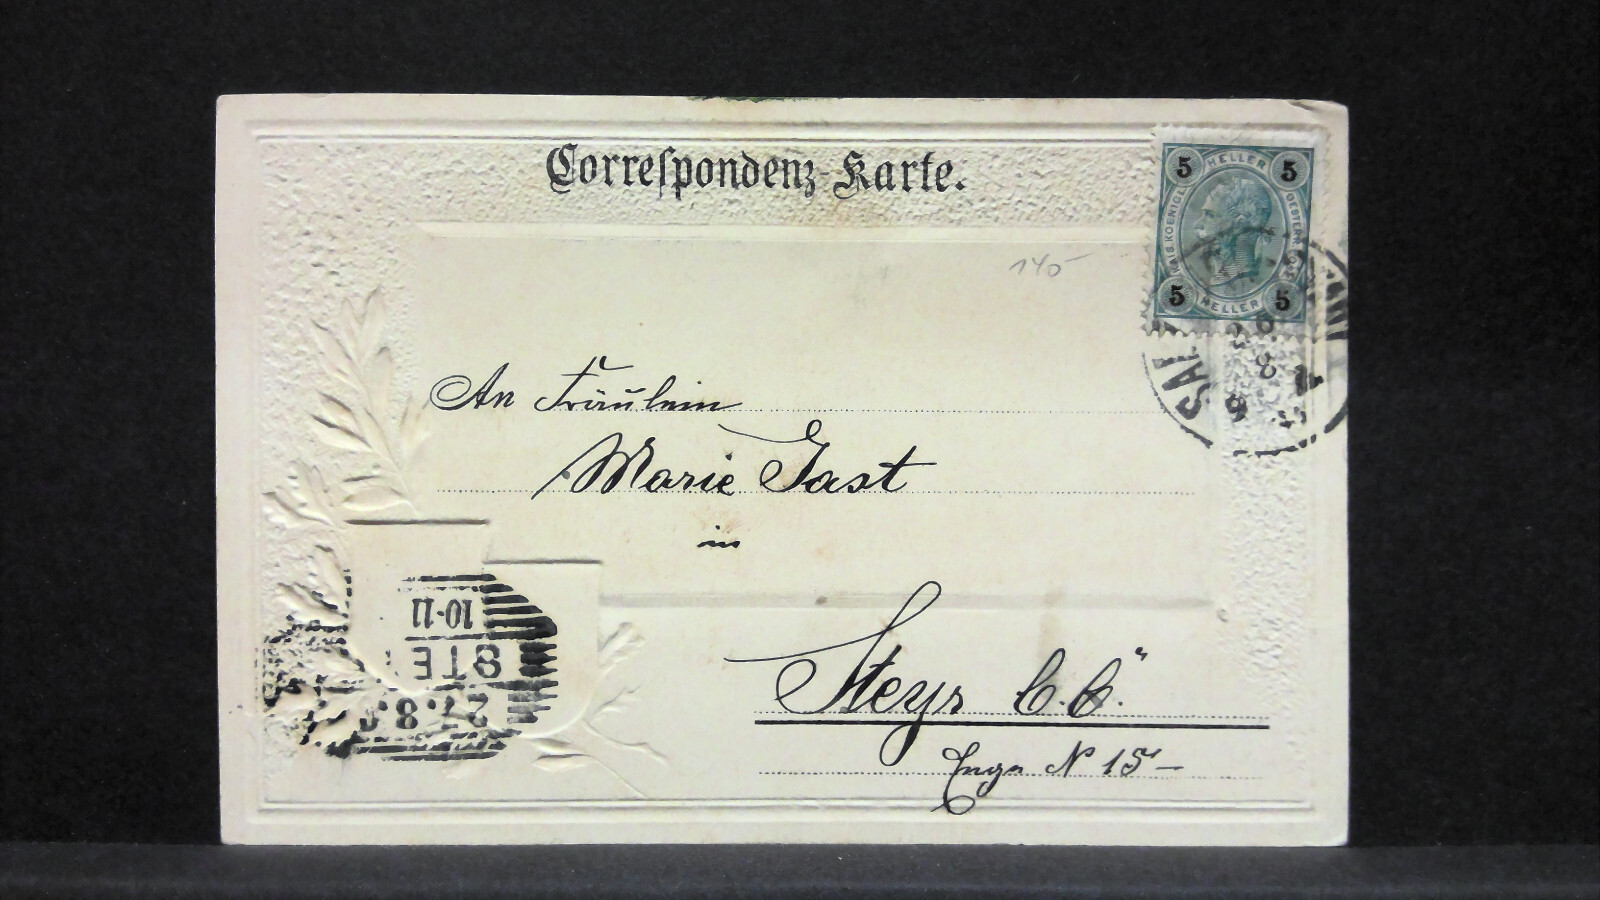 Correspondenz-Karte.
5 HELLER 5
KAIS. KOENIGL. OESTERR. POST
5 HELLER 5
140
SAL
An Fräulein
Marie Gast
in
Steyr
Enge N 15
10-11
STE
27.8